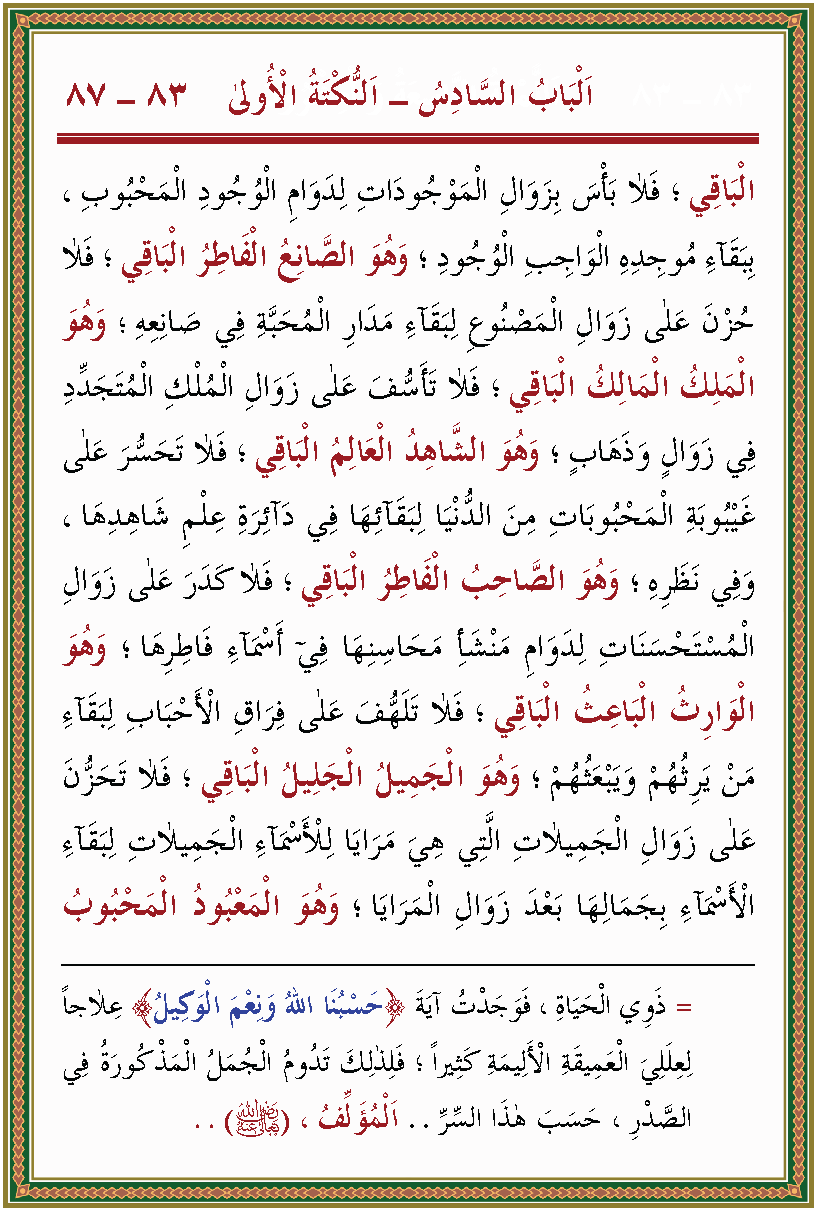 اَلْبَابُ السَّادِسُ ـ اَلنُّكْتَةُ الْأُولٰى ٨٣ ـ ٨٧
الْبَاقِي ؛ فَلَا بَأْسَ بِزَوَالِ الْمَوْجُودَاتِ لِدَوَامِ الْوُجُودِ الْمَحْبُوبِ ،
بِبَقَآءِ مُوجِدِهِ الْوَاجِبِ الْوُجُودِ ؛ وَهُوَ الصَّانِعُ الْفَاطِرُ الْبَاقِي ؛ فَلَا
حُزْنَ عَلٰى زَوَالِ الْمَصْنُوعِ لِبَقَآءِ مَدَارِ الْمُحَبَّةِ فِي صَانِعِهِ ؛ وَهُوَ
الْمَلِكُ الْمَالِكُ الْبَاقِي ؛ فَلَا تَأَسُّفَ عَلٰى زَوَالِ الْمُلْكِ الْمُتَجَدِّدِ
فِي زَوَالٍ وَذَهَابٍ ؛ وَهُوَ الشَّاهِدُ الْعَالِمُ الْبَاقِي ؛ فَلَا تَحَسُّرَ عَلٰى
غَيْبُوبَةِ الْمَحْبُوبَاتِ مِنَ الدُّنْيَا لِبَقَآئِهَا فِي دَآئِرَةِ عِلْمِ شَاهِدِهَا ،
وَفِي نَظَرِهِ ؛ وَهُوَ الصَّاحِبُ الْفَاطِرُ الْبَاقِي ؛ فَلَا كَدَرَ عَلٰى زَوَالِ
الْمُسْتَحْسَنَاتِ لِدَوَامِ مَنْشَأِ مَحَاسِنِهَا فِيٓ أَسْمَآءِ فَاطِرِهَا ؛ وَهُوَ
الْوَارِثُ الْبَاعِثُ الْبَاقِي ؛ فَلَا تَلَهُّفَ عَلٰى فِرَاقِ الْأَحْبَابِ لِبَقَآءِ
مَنْ يَرِثُهُمْ وَيَبْعَثُهُمْ ؛ وَهُوَ الْجَمِيلُ الْجَلِيلُ الْبَاقِي ؛ فَلَا تَحَزُّنَ
عَلٰى زَوَالِ الْجَمِيلَاتِ الَّتِي هِيَ مَرَايَا لِلْأَسْمَآءِ الْجَمِيلَاتِ لِبَقَآءِ
الْأَسْمَآءِ بِجَمَالِهَا بَعْدَ زَوَالِ الْمَرَايَا ؛ وَهُوَ الْمَعْبُودُ الْمَحْبُوبُ
= ذَوِي الْحَيَاةِ ، فَوَجَدْتُ آيَةَ ﴿حَسْبُنَا اللهُ وَنِعْمَ الْوَكِيلُ﴾ عِلَاجاً
لِعِلَلِيَ الْعَمِيقَةِ الْأَلِيمَةِ كَثِيراً ؛ فَلِذٰلِكَ تَدُومُ الْجُمَلُ الْمَذْكُورَةُ فِي
الصَّدْرِ ، حَسَبَ هٰذَا السِّرِّ . . اَلْمُؤَلِّفُ ، (رضي الله تعالى عنه) . .